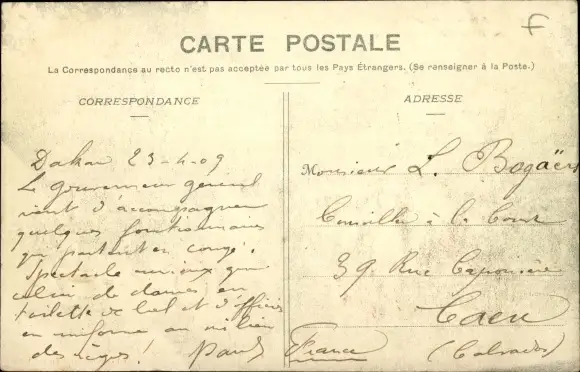 F
CARTE POSTALE
La Correspondance au recto n'est pas acceptée par tous les Pays Étrangers. (Se renseigner à la Poste.)
CORRESPONDANCE
Dakar 23-4-09
Le gouverneur général
vient d'accompagner
quelques fonctionnaires
qui partent en congé.
Spectacle curieux que
celui de dames en
toilette de bal et d'officiers
en uniforme au milieu
des nègres! Paul
ADRESSE
Monsieur L. Bogaërs
Conseiller à la Cour
39 Rue Caponière
Caen
France (Calvados)